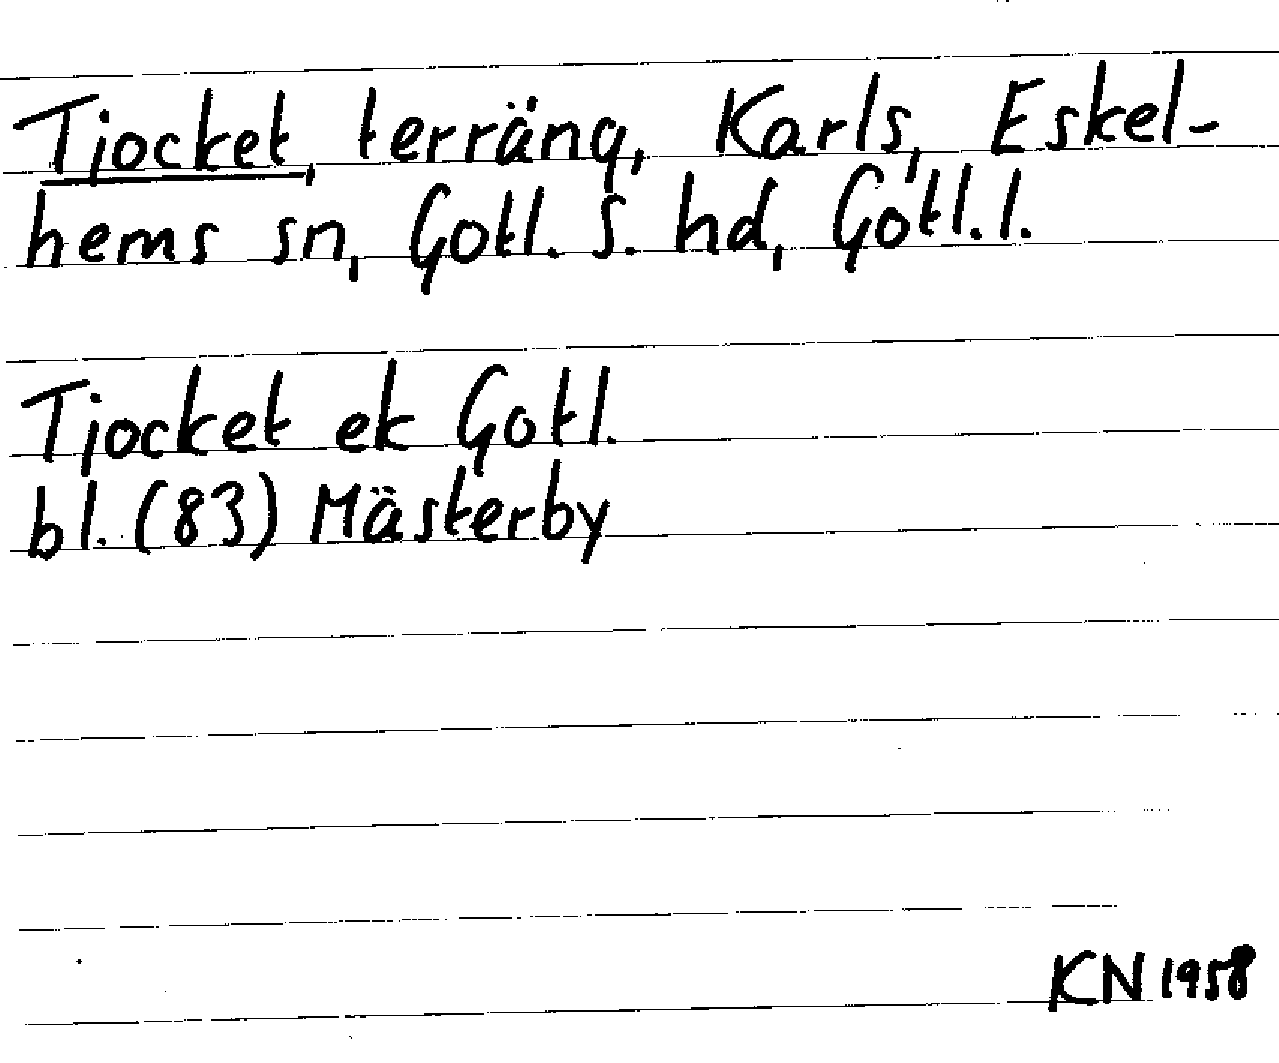 Tjocket, terräng, Karls, Eskel-
hems sn, Gotl. S. hd, Gotl. l.
Tjocket ek Gotl.
bl. (83) Mästerby
KN 1958